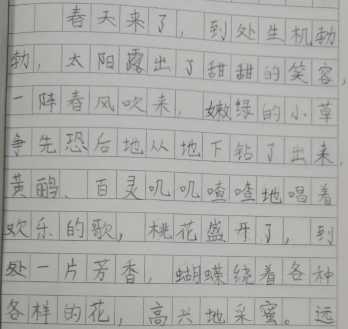 春天来了，到处生机勃
勃，太阳露出了甜甜的笑容，
一阵春风吹来，嫩绿的小草
争先恐后地从地下钻了出来，
黄鹂、百灵叽叽喳喳地唱着
欢乐的歌，桃花盛开了，到
处一片芳香，蝴蝶绕着各种
各样的花，高兴地采蜜。远